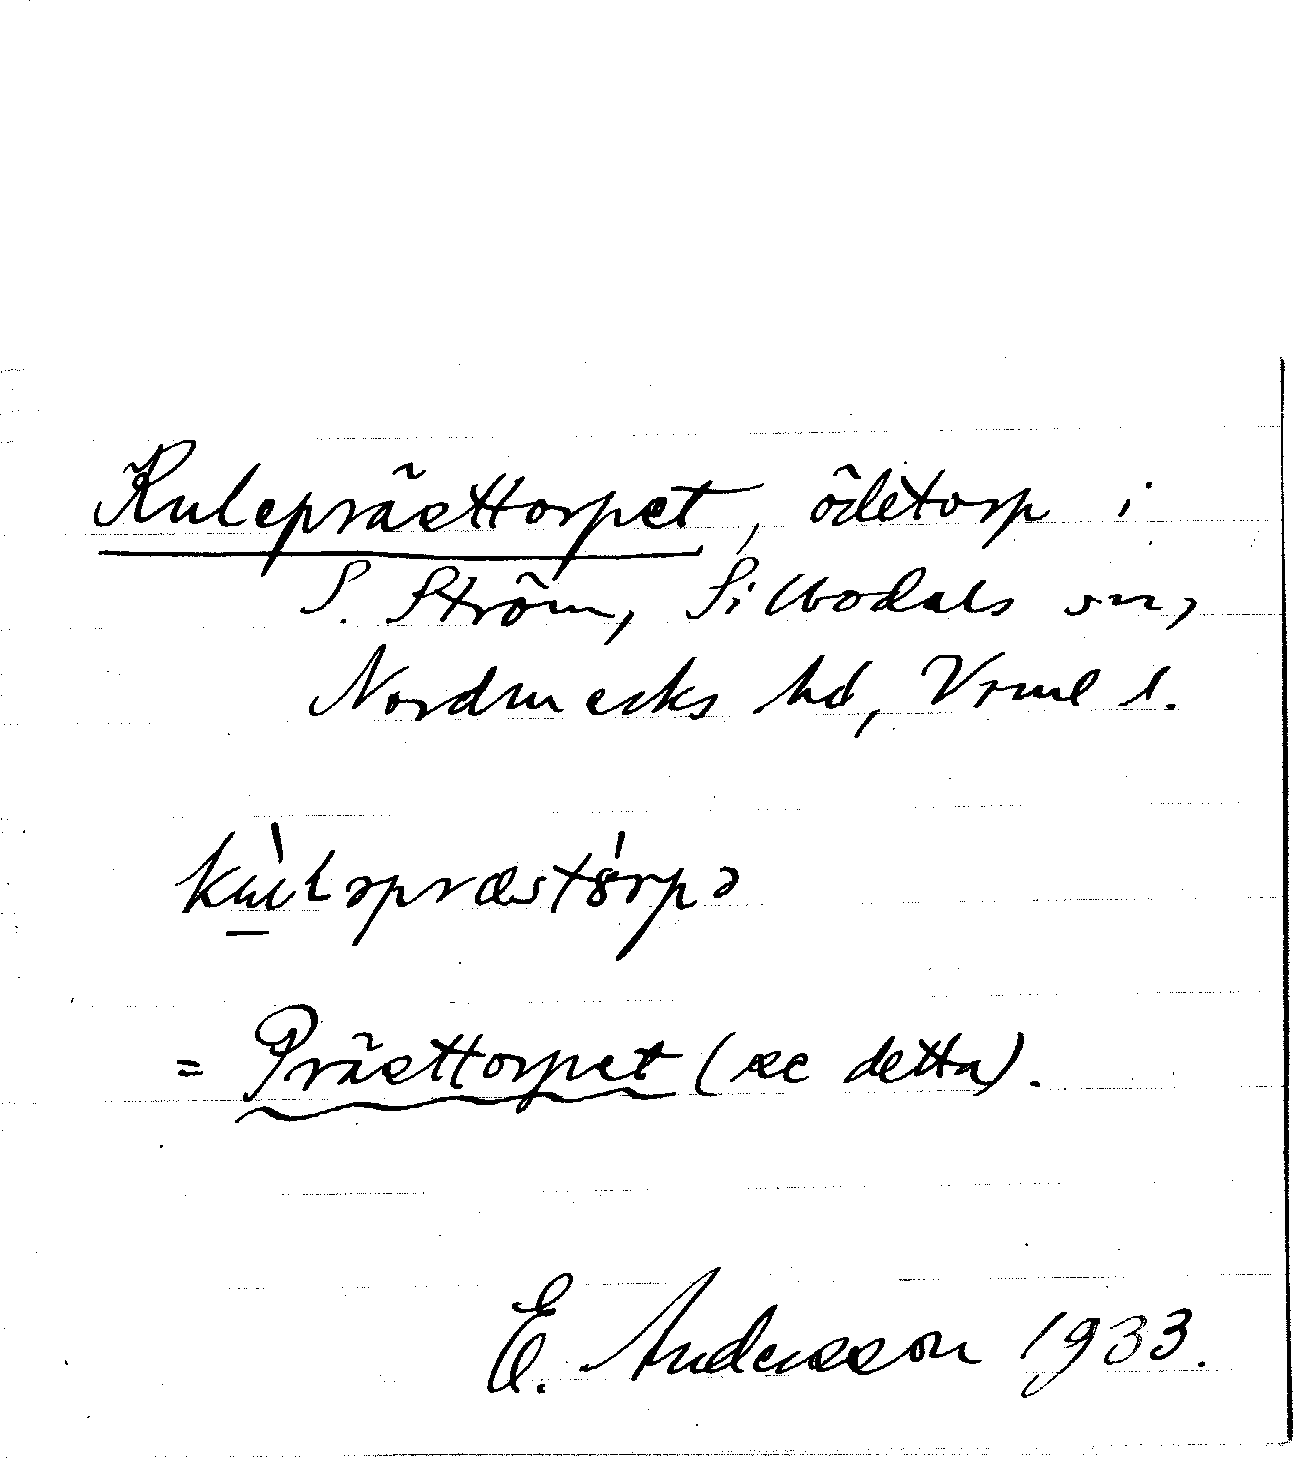 Kuleprästtorpet, ödetorp i
S. Ström, Silbodals sn,
Nordmarks hd, Vrml l.
kùləpræstórpə
= Prästtorpet (se detta).
E. Andersson 1933.